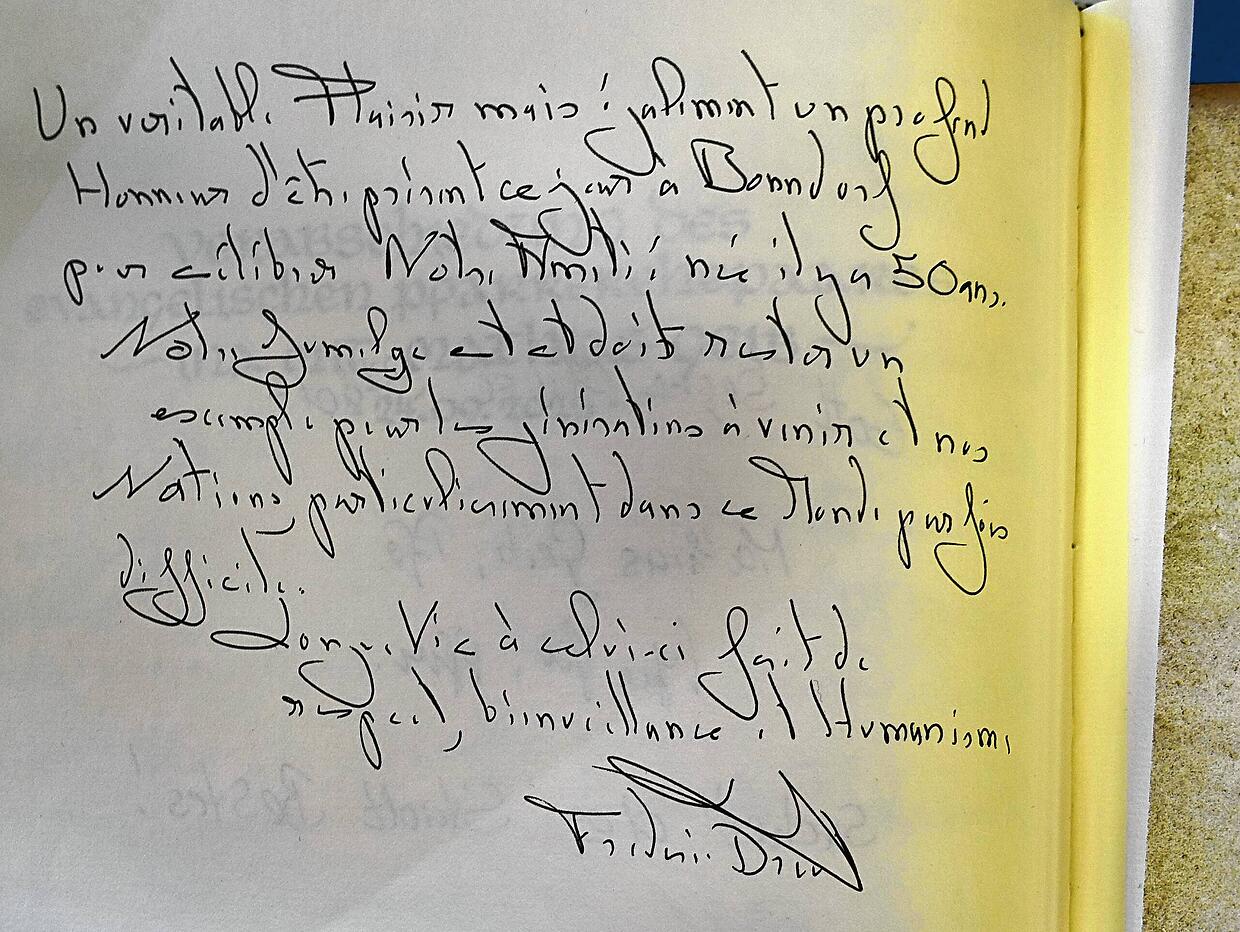 Un véritable Plaisir mais également un profond
Honneur d'être présent ce jour à Bonndorf
pour célébrer Notre Amitié née il y a 50 ans.
Notre Jumelage est et doit rester un
exemple pour les générations à venir et nos
Nations, particulièrement dans ce Monde parfois
difficile.
Longue Vie à celui-ci fait de
respect, bienveillance et Humanisme
Frédéric